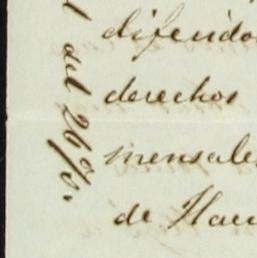 difendo
derechos
mensales
de Hau
l del 26%.